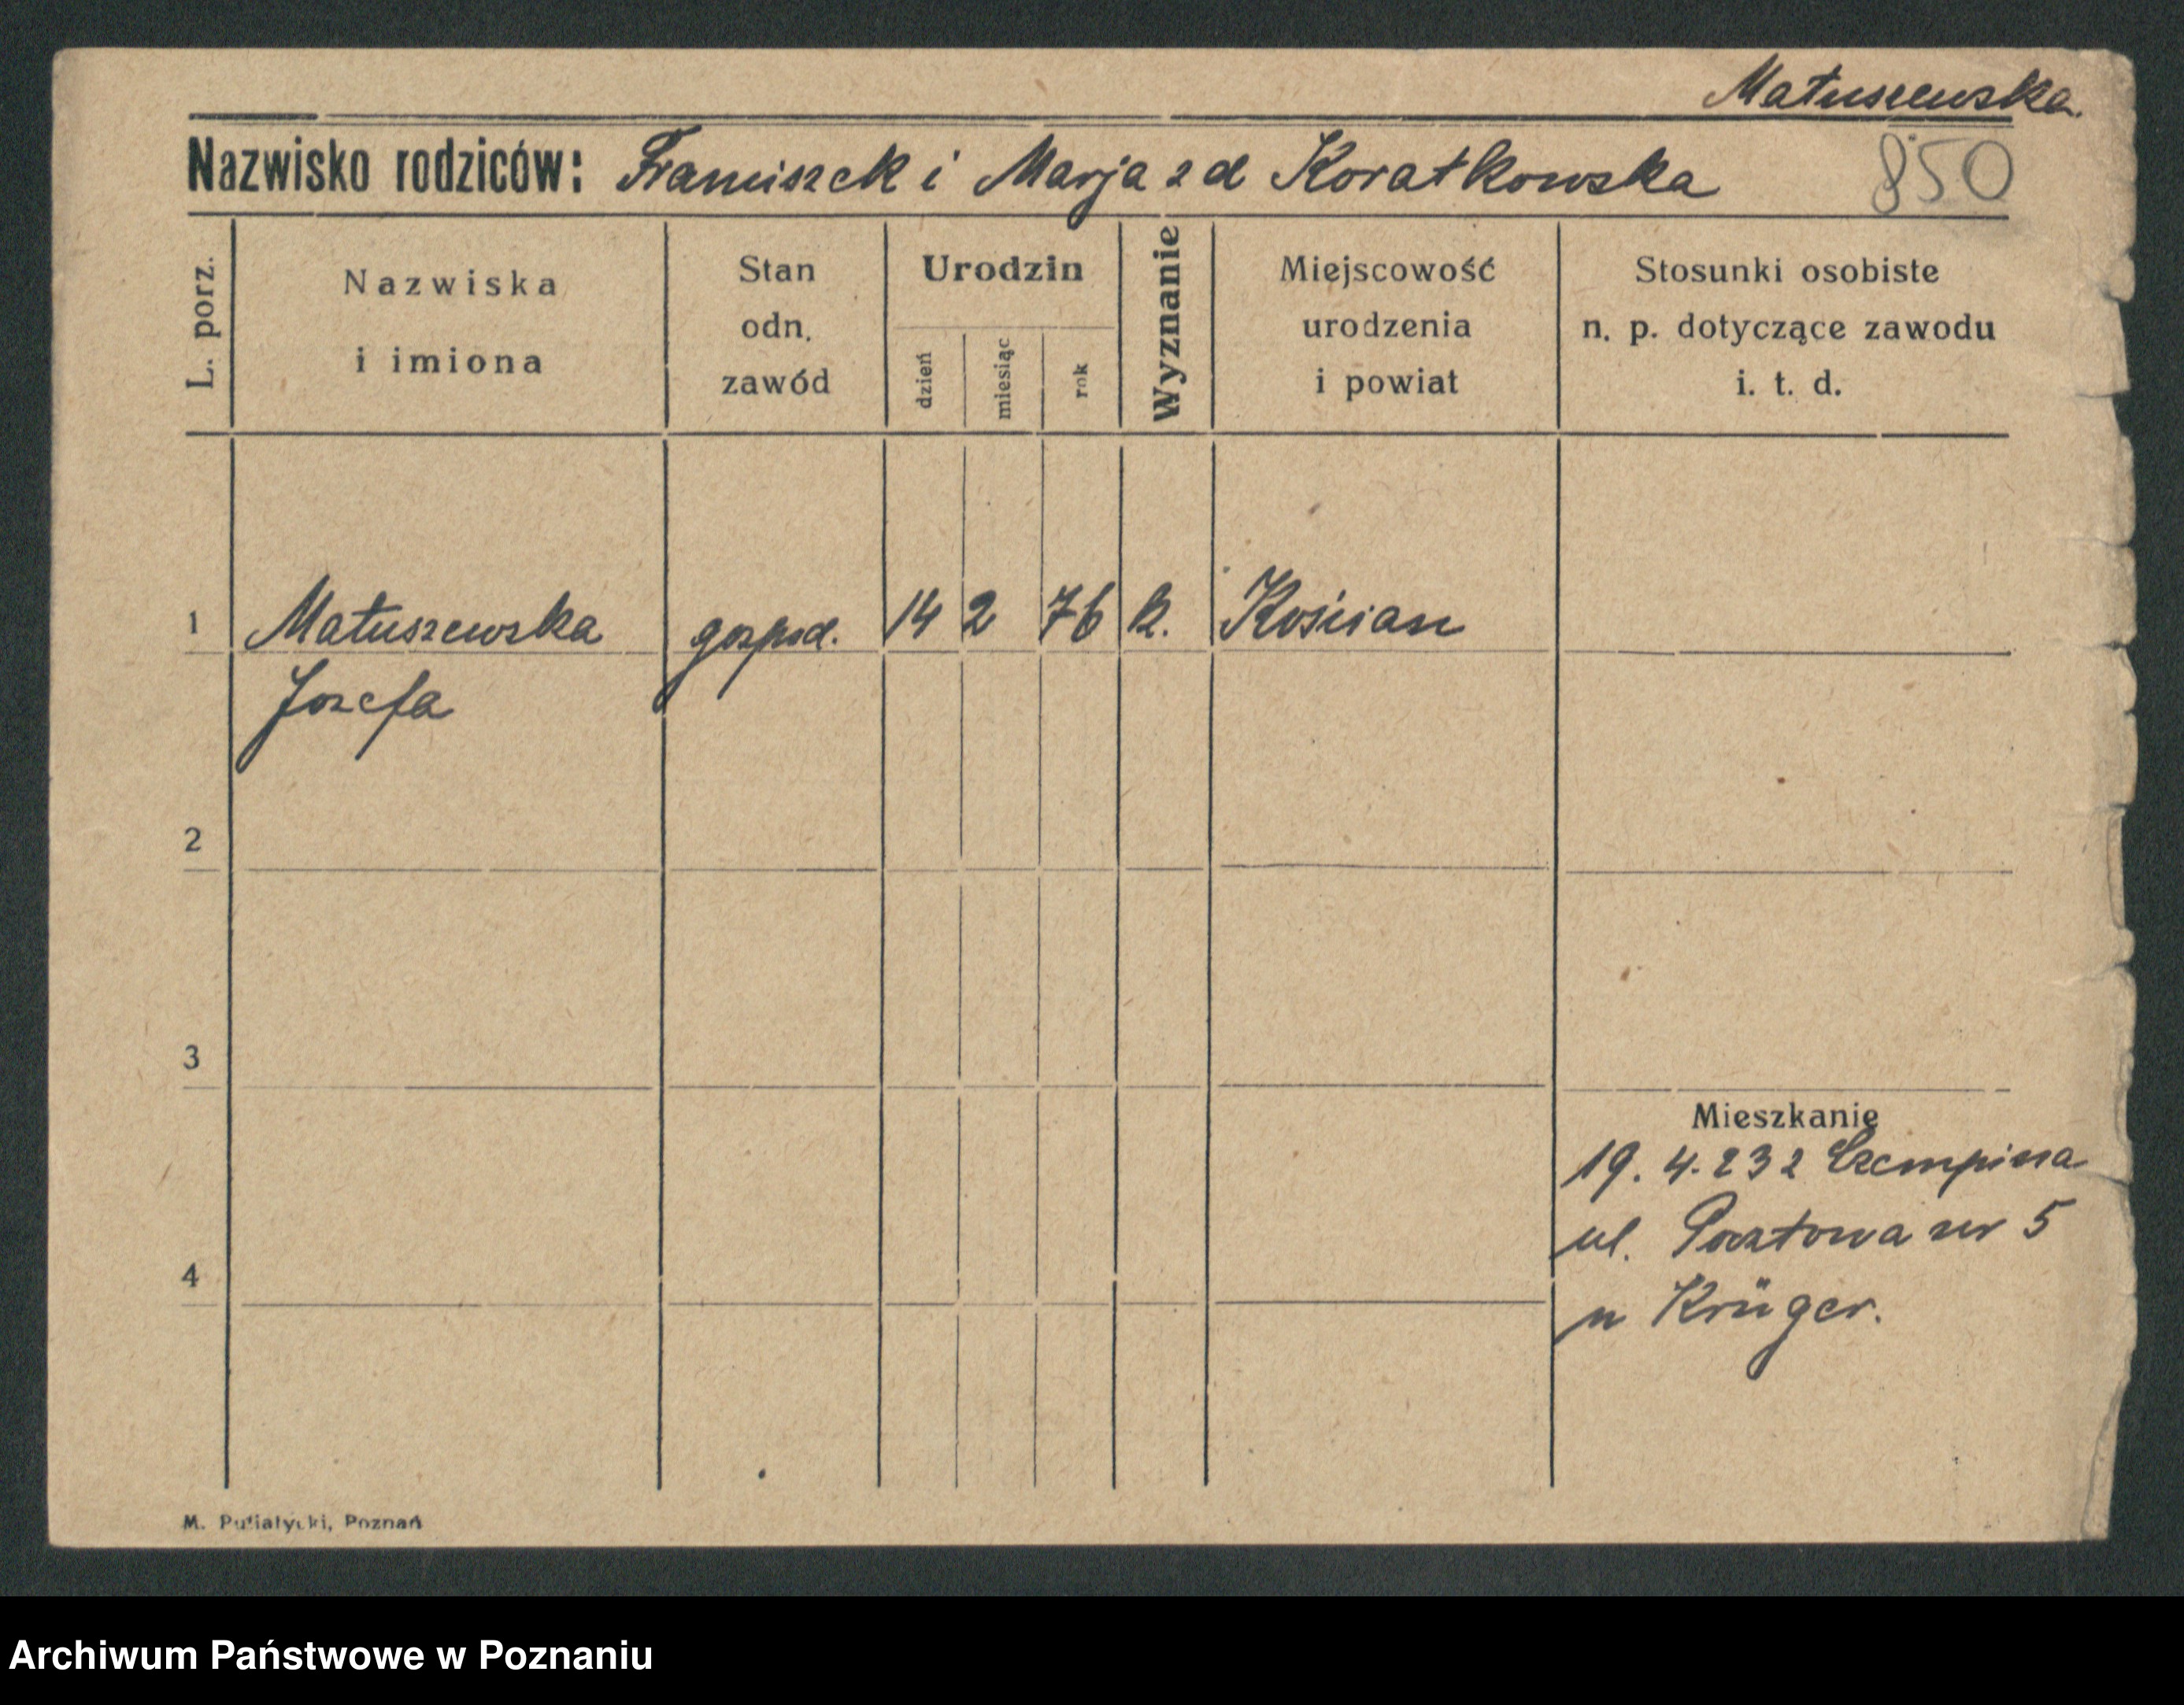 Matuszewska.
Nazwisko rodziców: Franciszek i Marja z d Koratkowska
850
L. porz.
Nazwiska
i imiona
Stan
odn.
zawód
Urodzin
dzień
miesiąc
rok
Wyznanie
Miejscowość
urodzenia
i powiat
Stosunki osobiste
n. p. dotyczące zawodu
i. t. d.
1 Matuszewska gospod. 14 2 76 k. Kościan
Jozefa
2
3
Mieszkanie
19. 4. 232 Czempina
ul. Pocztowa nr 5
4
u Krüger.
M. Putiatycki, Poznań
Archiwum Państwowe w Poznaniu